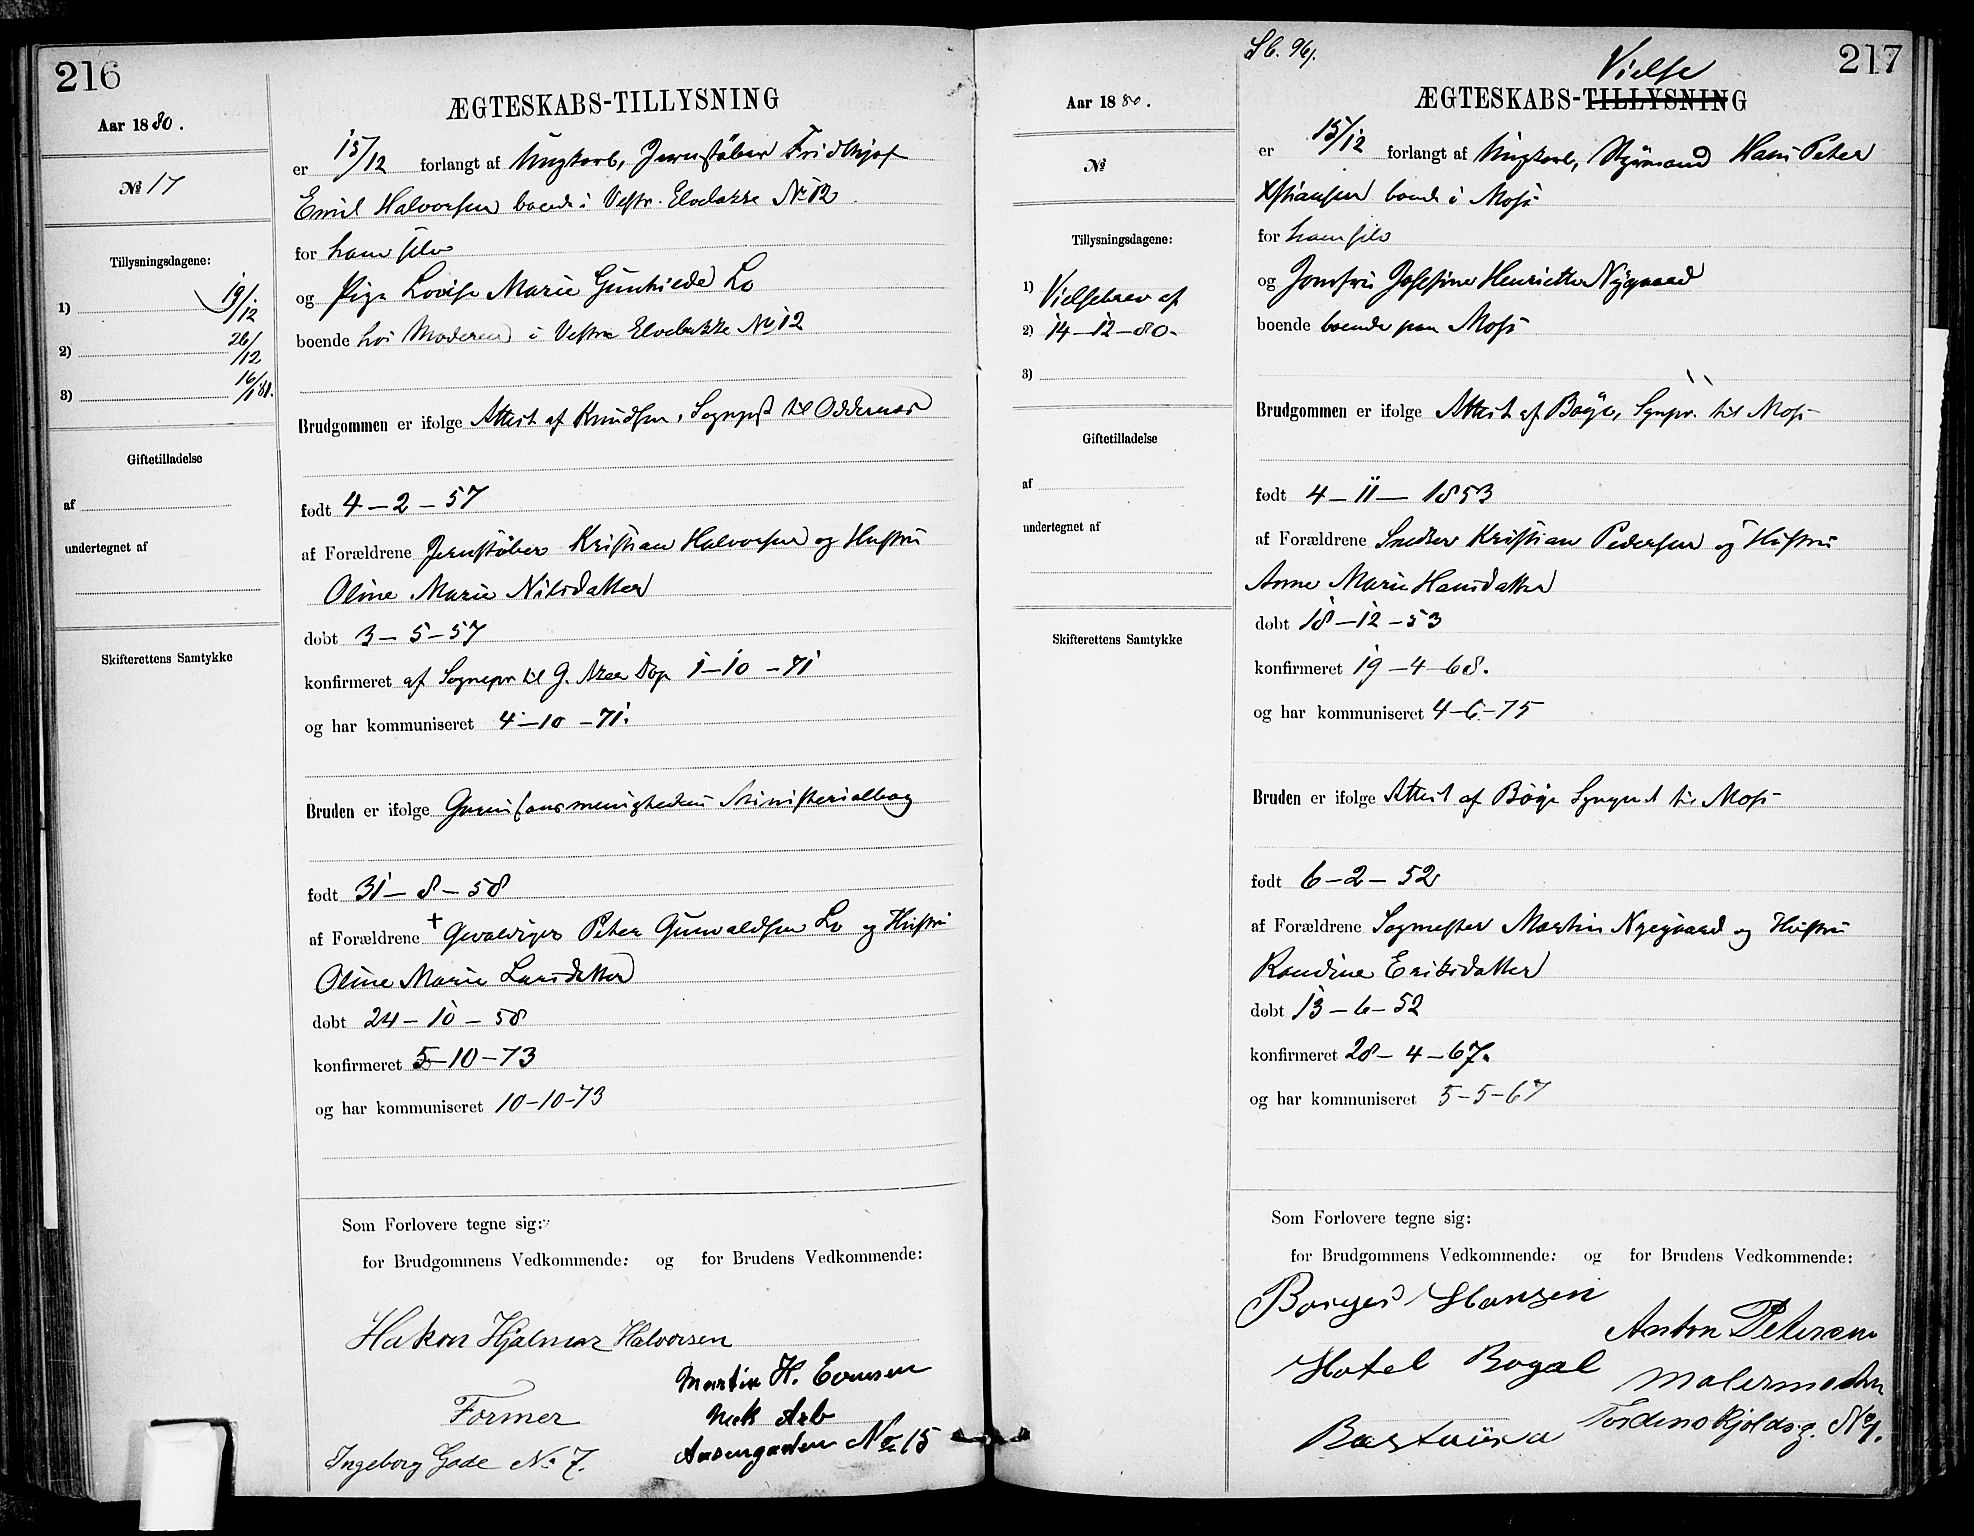 216
Aar 1880.
№ 17
Tillysningsdagene:
1) 19/12
2) 26/12
3) 16/1 81.
Giftetilladelse
af
undertegnet af
Skifterettens Samtykke
ÆGTESKABS-TILLYSNING
er 15/12 forlangt af Ungkarl, Jernstøber Fridthjof
Emil Halvorsen boende i Vestr. Elvebakke № 12
for ham selv
og Pige Lovise Marie Gunhilde Lo
boende hos Moderen i Vestre Elvebakke № 12
Brudgommen er ifølge Attest af Knudsen, Sognepst til Oddernes
født 4-2-57
af Forældrene Jernstøber Kristian Halvorsen og Hustru
Oline Marie Nilsdatter
døbt 3-5-57
konfirmeret af Sognepr til G. Akers 1-10-71
og har kommuniseret 4-10-71.
Bruden er ifølge Garnisonsmenighedens Ministerialbog
født 31-8-58
af Forældrene + Gevaldiger Peter Gunvaldsen Lo og Hustru
Oline Marie Larsdatter
døbt 24-10-58
konfirmeret 5-10-73
og har kommuniseret 10-10-73
Som Forlovere tegne sig:
for Brudgommens Vedkommende: og for Brudens Vedkommende:
Hakon Hjalmar Halvorsen
Former
Ingeborg Gade № 7.
Martin H. Evensen
Mek Arb
Aasengaden № 15
Sb. 96.
217
Aar 1880.
№
Tillysningsdagene:
1) Vielsebrev af
2) 14-12-80.
3)
Giftetilladelse
af
undertegnet af
Skifterettens Samtykke
Vielse
ÆGTESKABS-TILLYSNING
er 15/12 forlangt af Ungkarl, Styrmand Hans Peter
Xstiansen boende i Moss
for ham selv
og Jomfru Josefine Henriette Nygaard
boende boende paa Moss
Brudgommen er ifølge Attest af Bøge, Sognpr. til Moss
født 4-11-1853
af Forældrene Snedker Kristian Pedersen og Hustru
Anne Marie Hansdatter
døbt 18-12-53
konfirmeret 19-4-68.
og har kommuniseret 4-6-75
Bruden er ifølge Attest af Bøge Sognepst til Moss
født 6-2-52
af Forældrene Sagmester Martin Nygaard og Hustru
Randine Eriksdatter
døbt 13-6-52
konfirmeret 28-4-67.
og har kommuniseret 5-5-67
Som Forlovere tegne sig:
for Brudgommens Vedkommende: og for Brudens Vedkommende:
Hansen
Anton Petersen
Hotel Royal
Malermester
Tordenskjoldsg. №